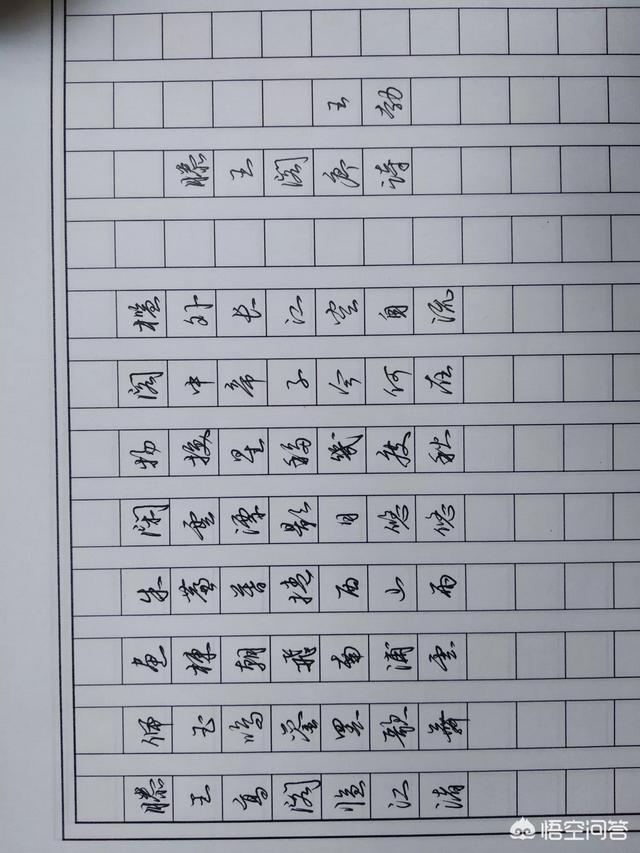 滕王高阁临江渚
佩玉鸣鸾罢歌舞
画栋朝飞南浦雲
朱簾暮捲西山雨
闲雲潭影日悠悠
物换星移幾度秋
阁中帝子今何在
槛外长江空自流
滕王阁序诗
王勃
悟空问答